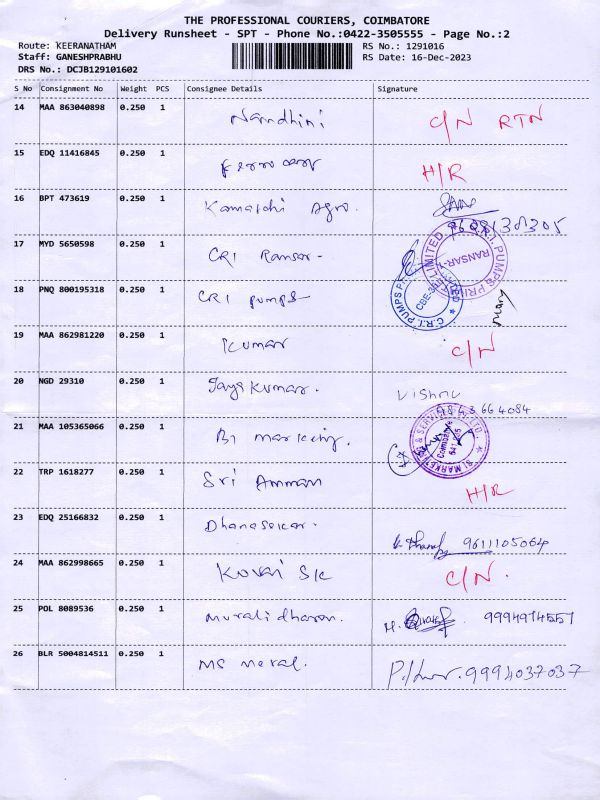 THE PROFESSIONAL COURIERS, COIMBATORE
Delivery Runsheet - SPT - Phone No.:0422-3505555 - Page No.:2
Route: KEERANATHAM RS No.: 1291016
Staff: GANESHPRABHU RS Date: 16-Dec-2023
DRS No.: DCJB129101602
S No Consignment No Weight PCS Consignee Details Signature
14 MAA 863040898 0.250 1 Nandhini C/N RTN
15 EDQ 11416845 0.250 1 H/R
16 BPT 473619 0.250 1 Kamatchi Agro.
17 MYD 5650598 0.250 1 CRI Ransar - RANSAR-1
18 PNQ 800195318 0.250 1 CRI pumps C.R.I. PUMPS
19 MAA 862981220 0.250 1 Kumar C/N
20 NGD 29310 0.250 1 Jaya Kumar. Vishnu
9843664084
21 MAA 105365066 0.250 1 BI Marketing. Coimbatore
22 TRP 1618277 0.250 1 Sri Amman H/R
23 EDQ 25166832 0.250 1 Dhanasekar. 9611105064
24 MAA 862998665 0.250 1 Kovai S/C C/N.
25 POL 8089536 0.250 1 Muralidharan. 9994974557
26 BLR 5004814511 0.250 1 MS Metal. 9994037037